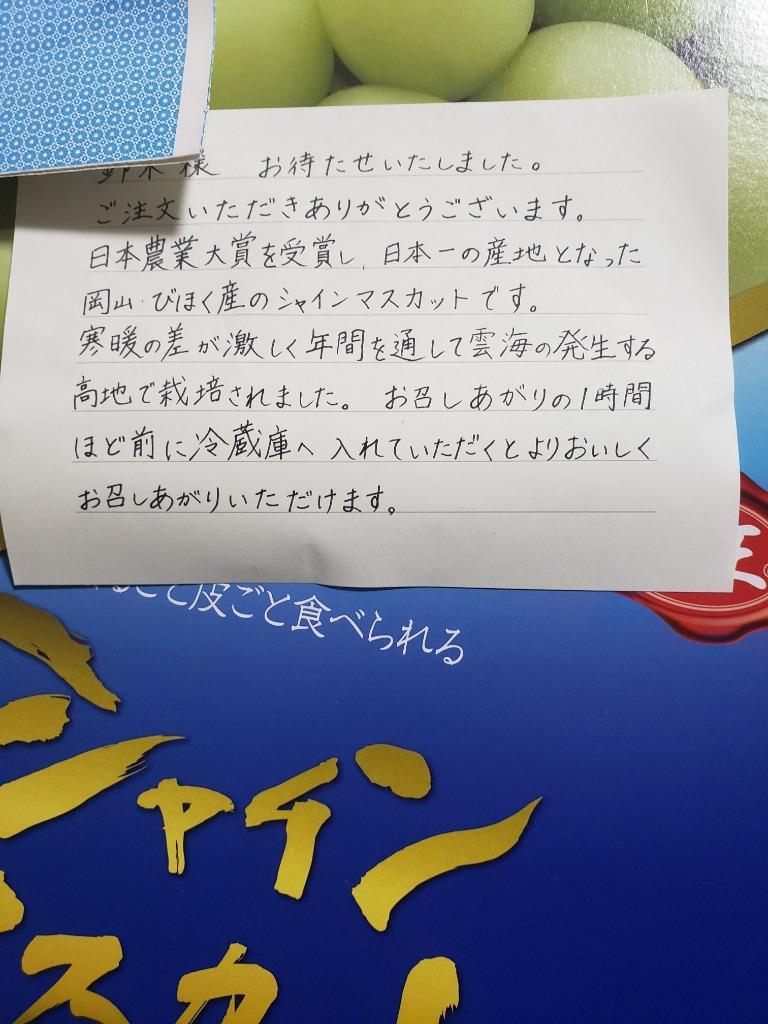 鈴木様 お待たせいたしました。
ご注文いただきありがとうございます。
日本農業大賞を受賞し、日本一の産地となった
岡山・びほく産のシャインマスカットです。
寒暖の差が激しく年間を通して雲海の発生する
高地で栽培されました。 お召しあがりの1時間
ほど前に冷蔵庫へ入れていただくとよりおいしく
お召しあがりいただけます。
るごと皮ごと食べられる
シャイン
スカ